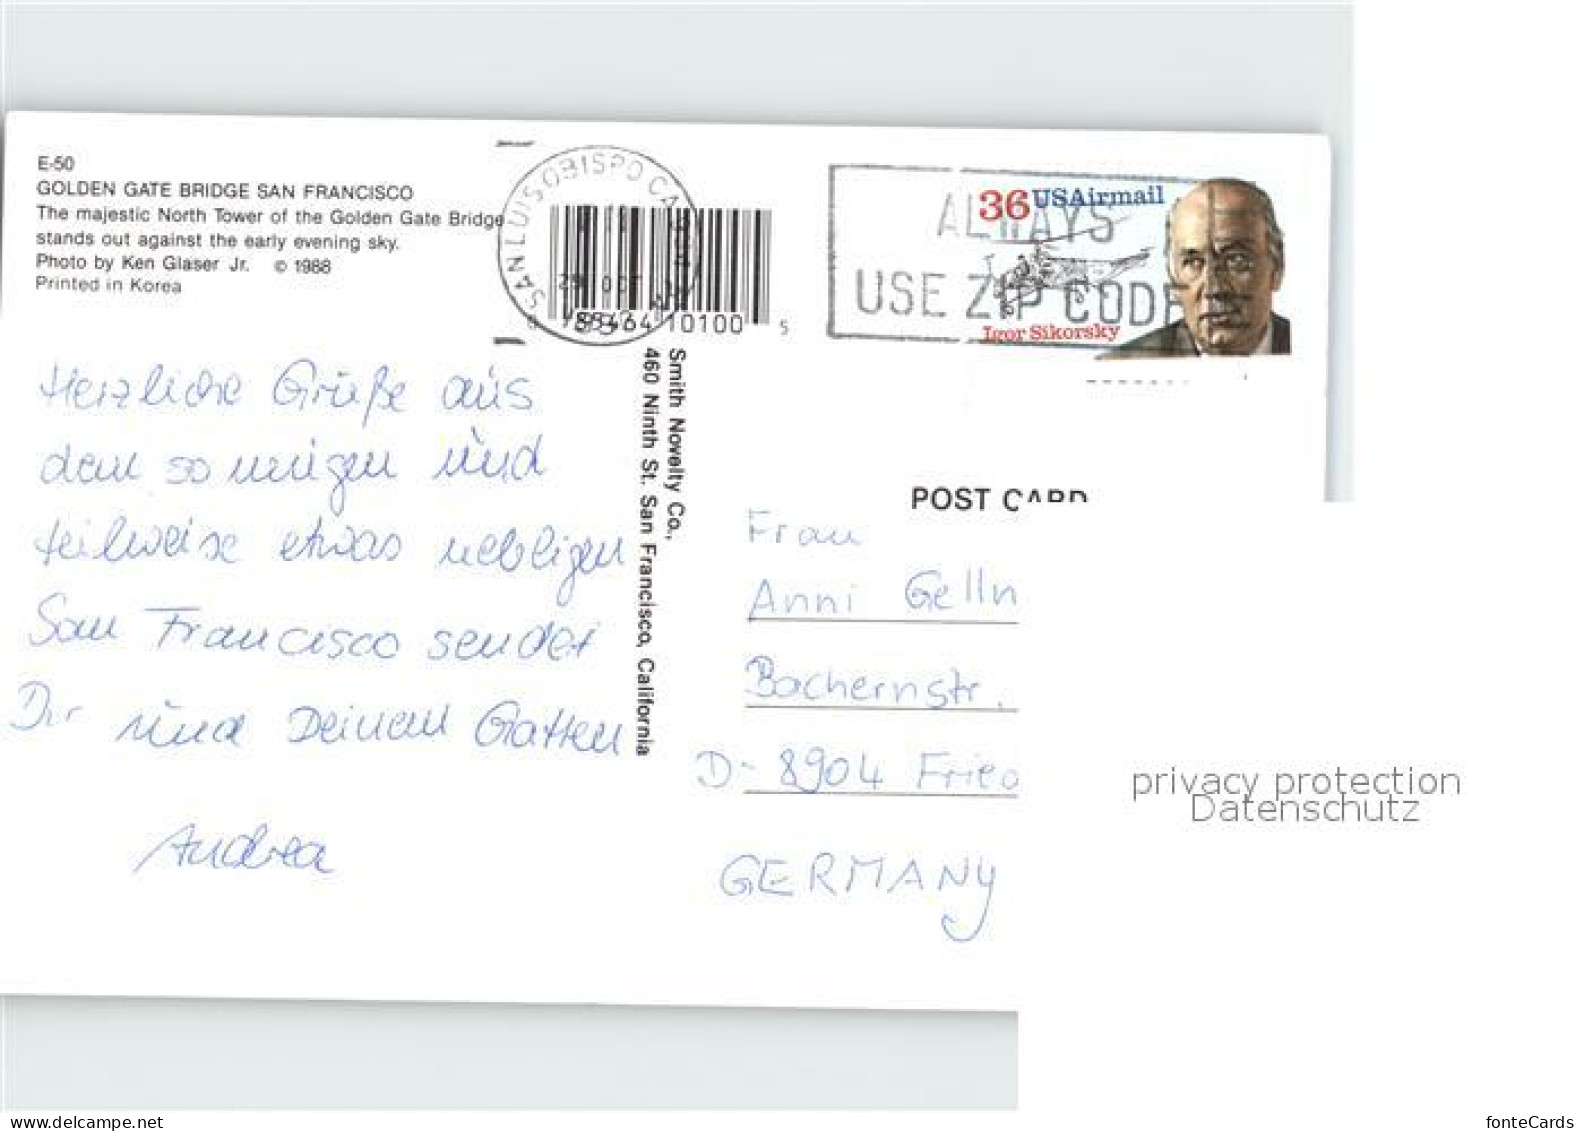 E-50
GOLDEN GATE BRIDGE SAN FRANCISCO
The majestic North Tower of the Golden Gate Bridge
stands out against the early evening sky.
Photo by Ken Glaser Jr. © 1988
Printed in Korea
SAN LUIS OBISPO CA
OCT
10100 5
ALWAYS
USE ZIP CODE
36 USAirmail
Igor Sikorsky
Herzliche Grüße aus
dem sonnigen und
teilweise etwas nebligen
San Francisco sendet
Dir und Deinem Gatten
Andrea
Smith Novelty Co.,
460 Ninth St. San Francisco, California
POST CARD
Frau
Anni Gelln
Bachernstr.
D-8904 Fried
GERMANY
privacy protection
Datenschutz
www.delcampe.net
fonteCards